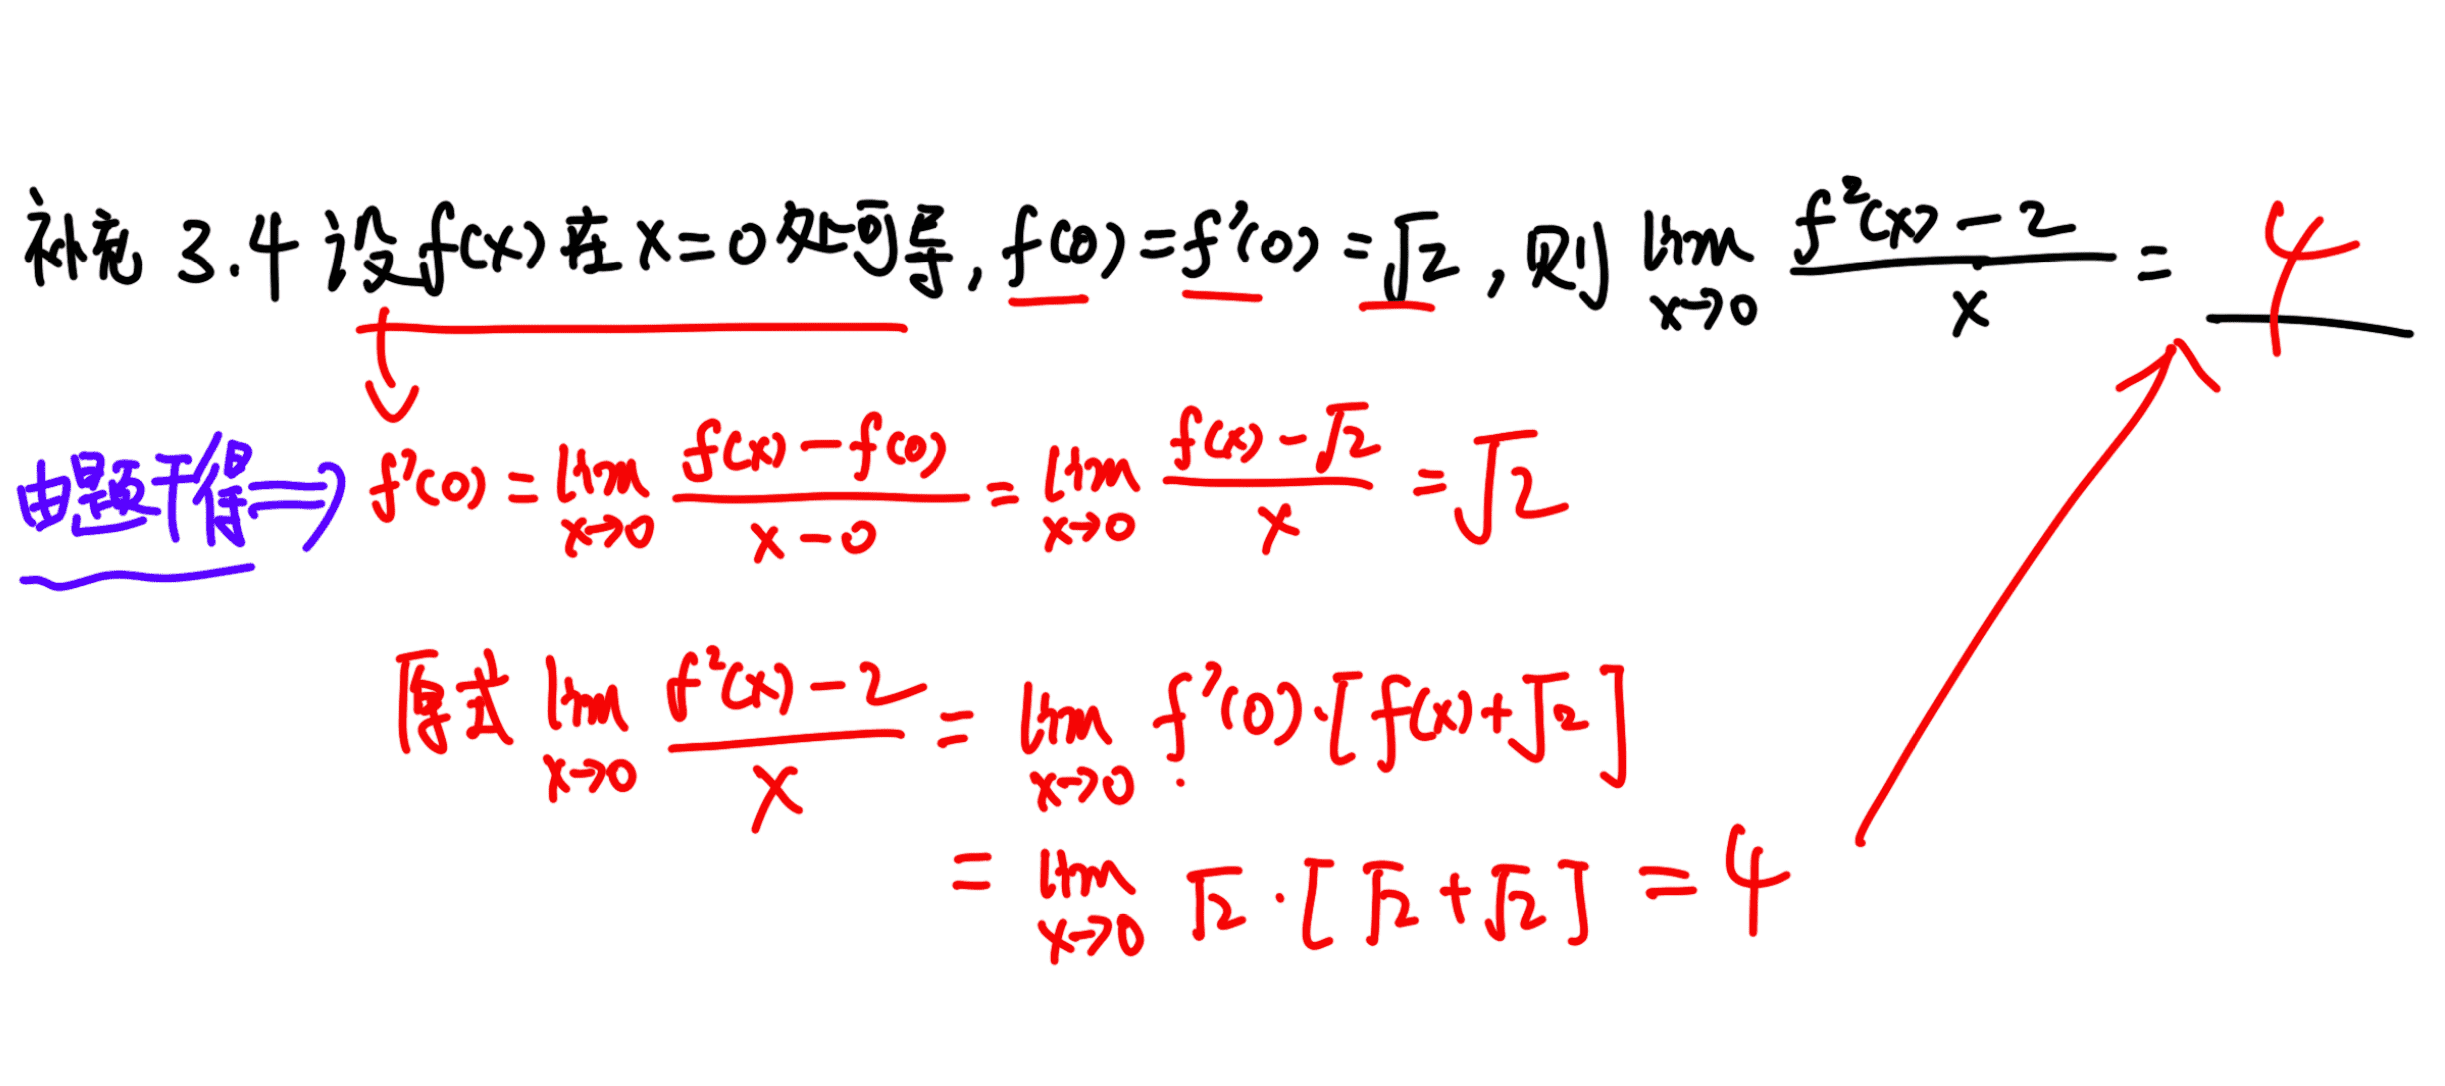 补充 3.4 设f(x)在x=0处可导, f(0)=f'(0)=√2, 则 lim x→0 (f²(x)-2)/x = 4
由题干得⇒ f'(0) = lim x→0 (f(x)-f(0))/(x-0) = lim x→0 (f(x)-√2)/x = √2
原式 lim x→0 (f²(x)-2)/x = lim x→0 f'(0)·[f(x)+√2]
= lim x→0 √2·[√2+√2] = 4